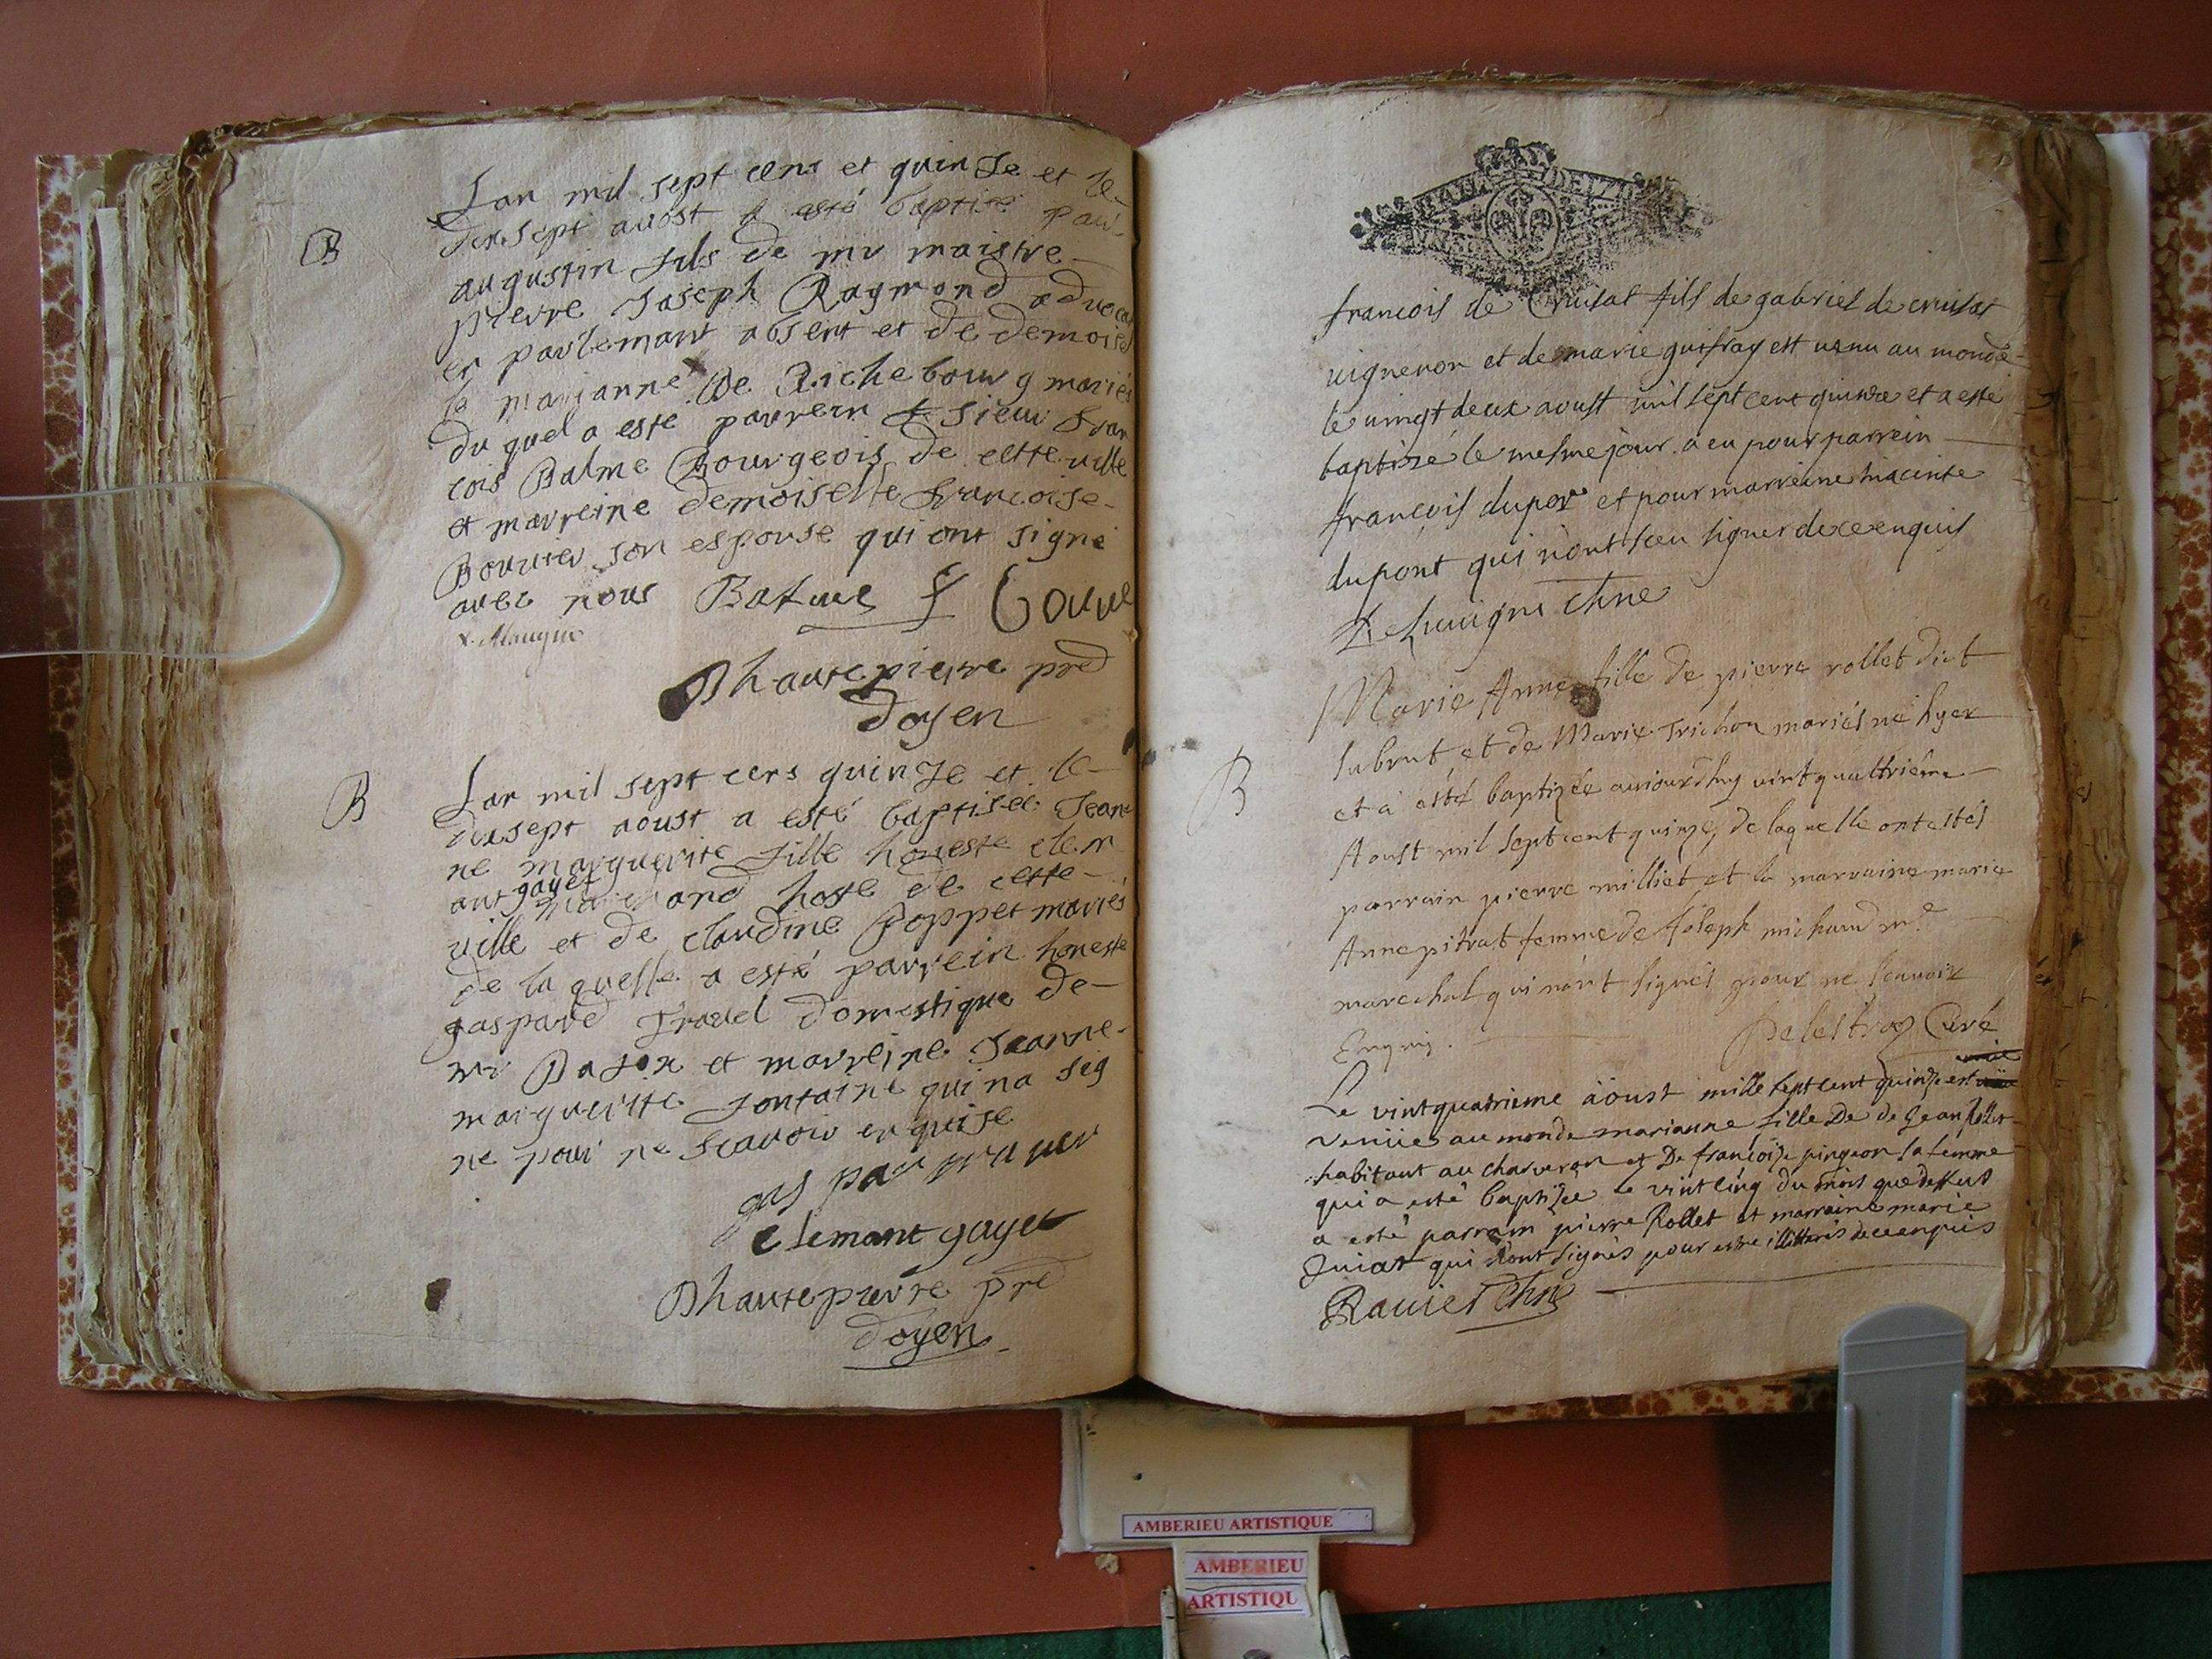 B
Lan mil sept cens et quinze et le
dixsept avost a esté baptisé paul
augustin fils de mr maistre
pierre Joseph Raymond advocat
en parlemant absent et de demoisel
le marjanne De Richebourg mariés
du quel a este parrein sieur fran
cois Balme Bourgeois de cette ville
et marreine demoiselle francoise
Bouvier son espouse qui ont signé
avec nous Balme
Dhautepierre pre
doyen
B
Lan mil sept cens quinze et le
dixsept aoust a esté baptisée Jean
ne marguerite fille honeste clem
ant gayet marchand hoste de cette
ville et de claudine Poppet mariés
de la quelle a esté parrein honeste
gaspard domestique de
mr et marreine Jeanne
marguerite fontaine qui na sig
né pour ne scavoir enquise
clemant gayet
Dhautepierre pre
doyen
francois de Cruisat fils de gabriel de cruisat
vigneron et de marie guifray est venu au monde
le vingt deux aoust mil sept cent quinze et a esté
baptisé le mesme jour a eu pour parrein
francois dupont et pour marreine hiacinte
dupont qui n'ont sceu signer de ce enquis
B
Marie Anne fille de pierre rollet dict
et de Marie Trichon mariés né hyer
et a esté baptizée aujourdhuy vint quattriême
Aoust mil sept cent quinze, de laquelle ont estés
parrain pierre milliet et la marraine marie
Anne pitrat femme de Joseph michaud me
marechal qui n'ont signés pour ne scavoir
Enquis.
Delestraz Curé
Le vintquatrieme aöust mille sept cent quinze est
venüe au monde marianne fille De de Jean Rollet
habitant au charveron et De françoize pingeon sa femme
qui a esté baptizée le vintcinq du mois que dessus
a esté parrain pierre Rollet et marraine marie
Juiat qui n'ont signés pour estre illitterés de ce enquis
Ravier Chne
AMBERIEU ARTISTIQUE
AMBERIEU
ARTISTIQU